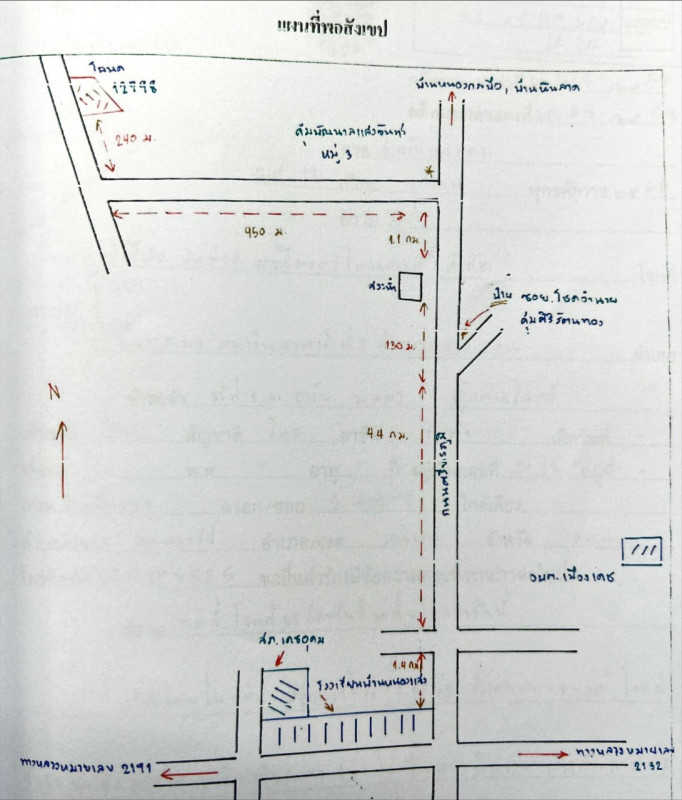 แผนที่พอสังเขป
โฉนด
12798
240 ม.
บ้านหนองกลปือ, บ้านหินลาด
คุ้มพัฒนาแสงจันทร์
หมู่ 3
950 ม.
1.1 กม.
สระน้ำ
ป้าย ซอย.โชคอำนวย
คุ้มศิริรัตนทอง
130 ม.
N
4.4 กม.
อบต.เมืองเดช
สภ.เดชอุดม
1.4 กม.
โรงเรียนบ้านหนองแสง
ทางหลวงหมายเลข 2191
ทางหลวงหมายเลข
2192